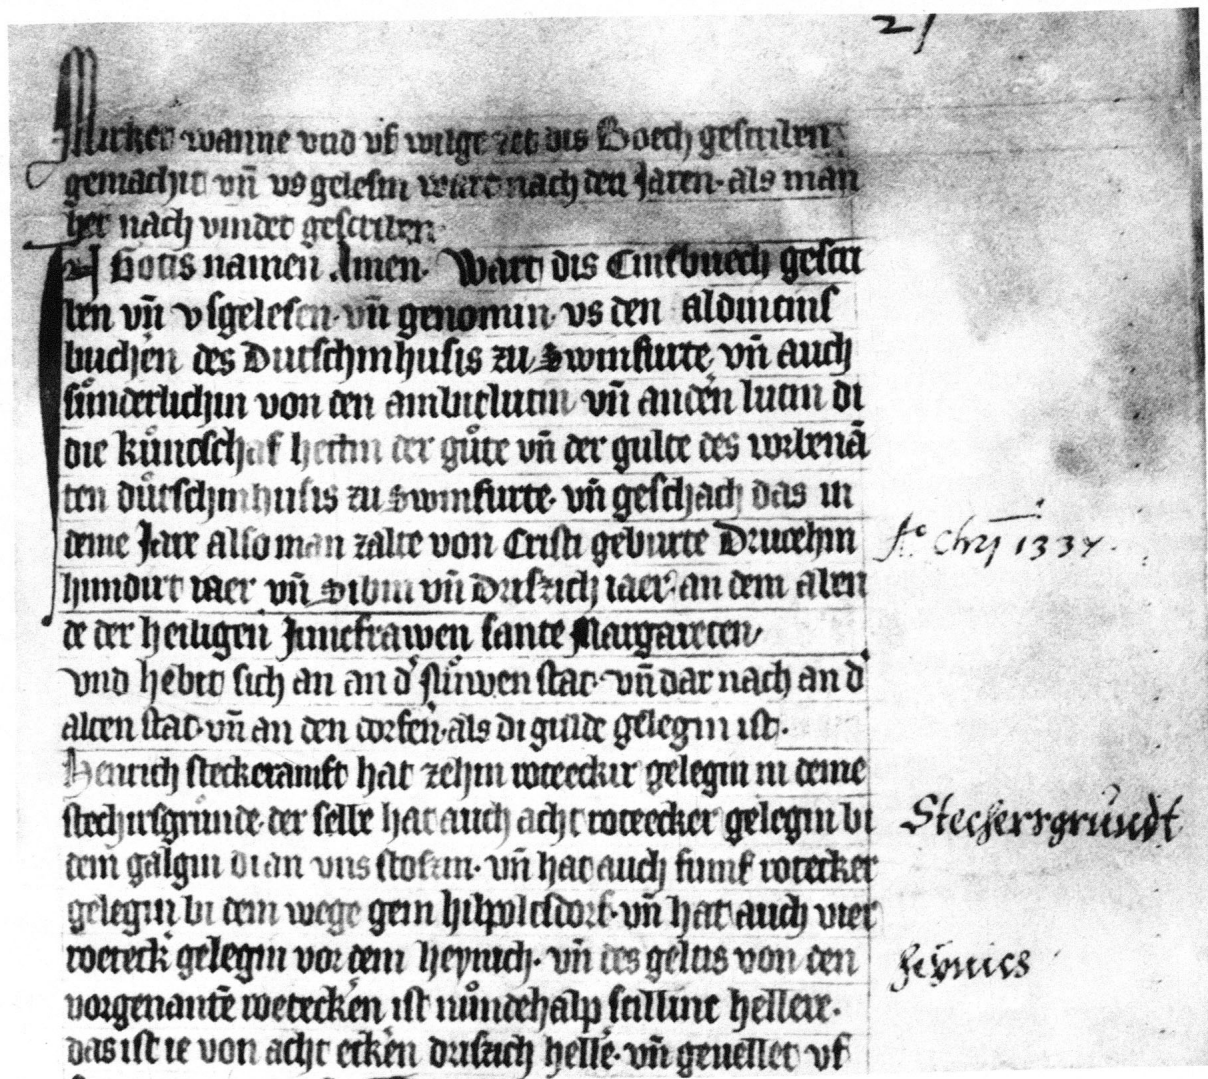 21
Mirket wanne vnd vf wilge zet dis Boech gescriben
gemachit vn̄ vs gelesin wart nach den Jaren · als man
her nach vindet gescriben ·
In Gotis namen Amen · Wart dis Cinsbuech gescri
ben vn̄ vsgelesen · vn̄ genomin · vs den aldin cins
buchen des Dutschinhusis zu Swinfurte vn̄ auch
sůnderlichin von den ambitlutin vn̄ andē̓n lutin di
die kůntschaf hettin der gůte vn̄ der gulte des vorbenā
ten důtschinhusis zu Swinfurte · vn̄ geschach das in
deme Jare also man zalte von Cristi geburte Drucehin
hundirt iaer vn̄ Sibin vn̄ Driszich iaer · an dem aben
de der heiligen Juncfrawen sante Margareten
A̅o̅ Chrj 1337 ·
vnd hebit sich an an d' nůwen stat · vn̄ dar nach an d'
alten stat · vn̄ an den dorfen · als di gulde gelegin ist ·
Henrich steckeramft hat zehin roteeckir gelegin in deme
stechirsgrunde · der selbe hat auch acht roteecker gelegin bi
Stecherrgrundt
dem galgin di an vns stoszin · vn̄ hat auch funf rotecker
gelegin bi dem wege gein hilpoltsdorf · vn̄ hat auch vier
roeteck' gelegin vor dem heynich · vn̄ des geltis von den
vorgenantē roetecken ist nůndehalp scillinc hellere ·
das ist ie von acht eckē̓n driszich helle' · vn̄ geuellet vf